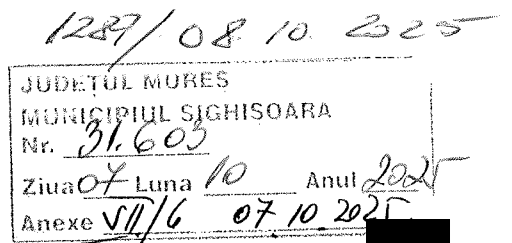 1289/08.10.2025
JUDEŢUL MUREŞ
MUNICIPIUL SIGHISOARA
Nr. 31.603
Ziua 07 Luna 10 Anul 2025
Anexe VII/6 07.10.2025